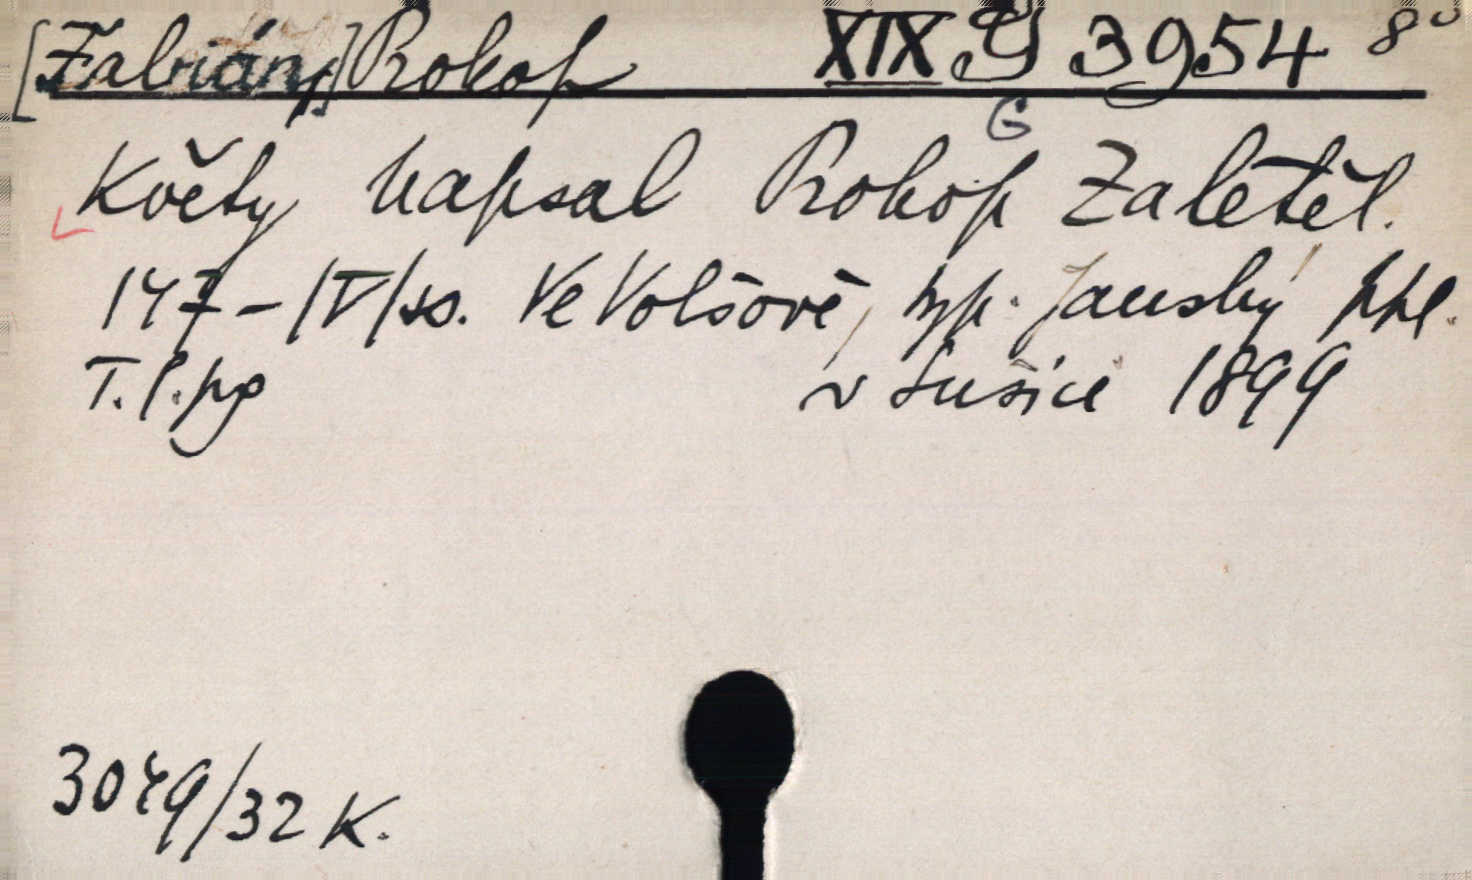 [Fabián] Prokop XIX G 3954 8°
G
Květy napsal Prokop Zaletěl.
147-/V/ss. Ve Volšově, typ. Janský
T. l. pg v Sušice 1899
3049/32 K.